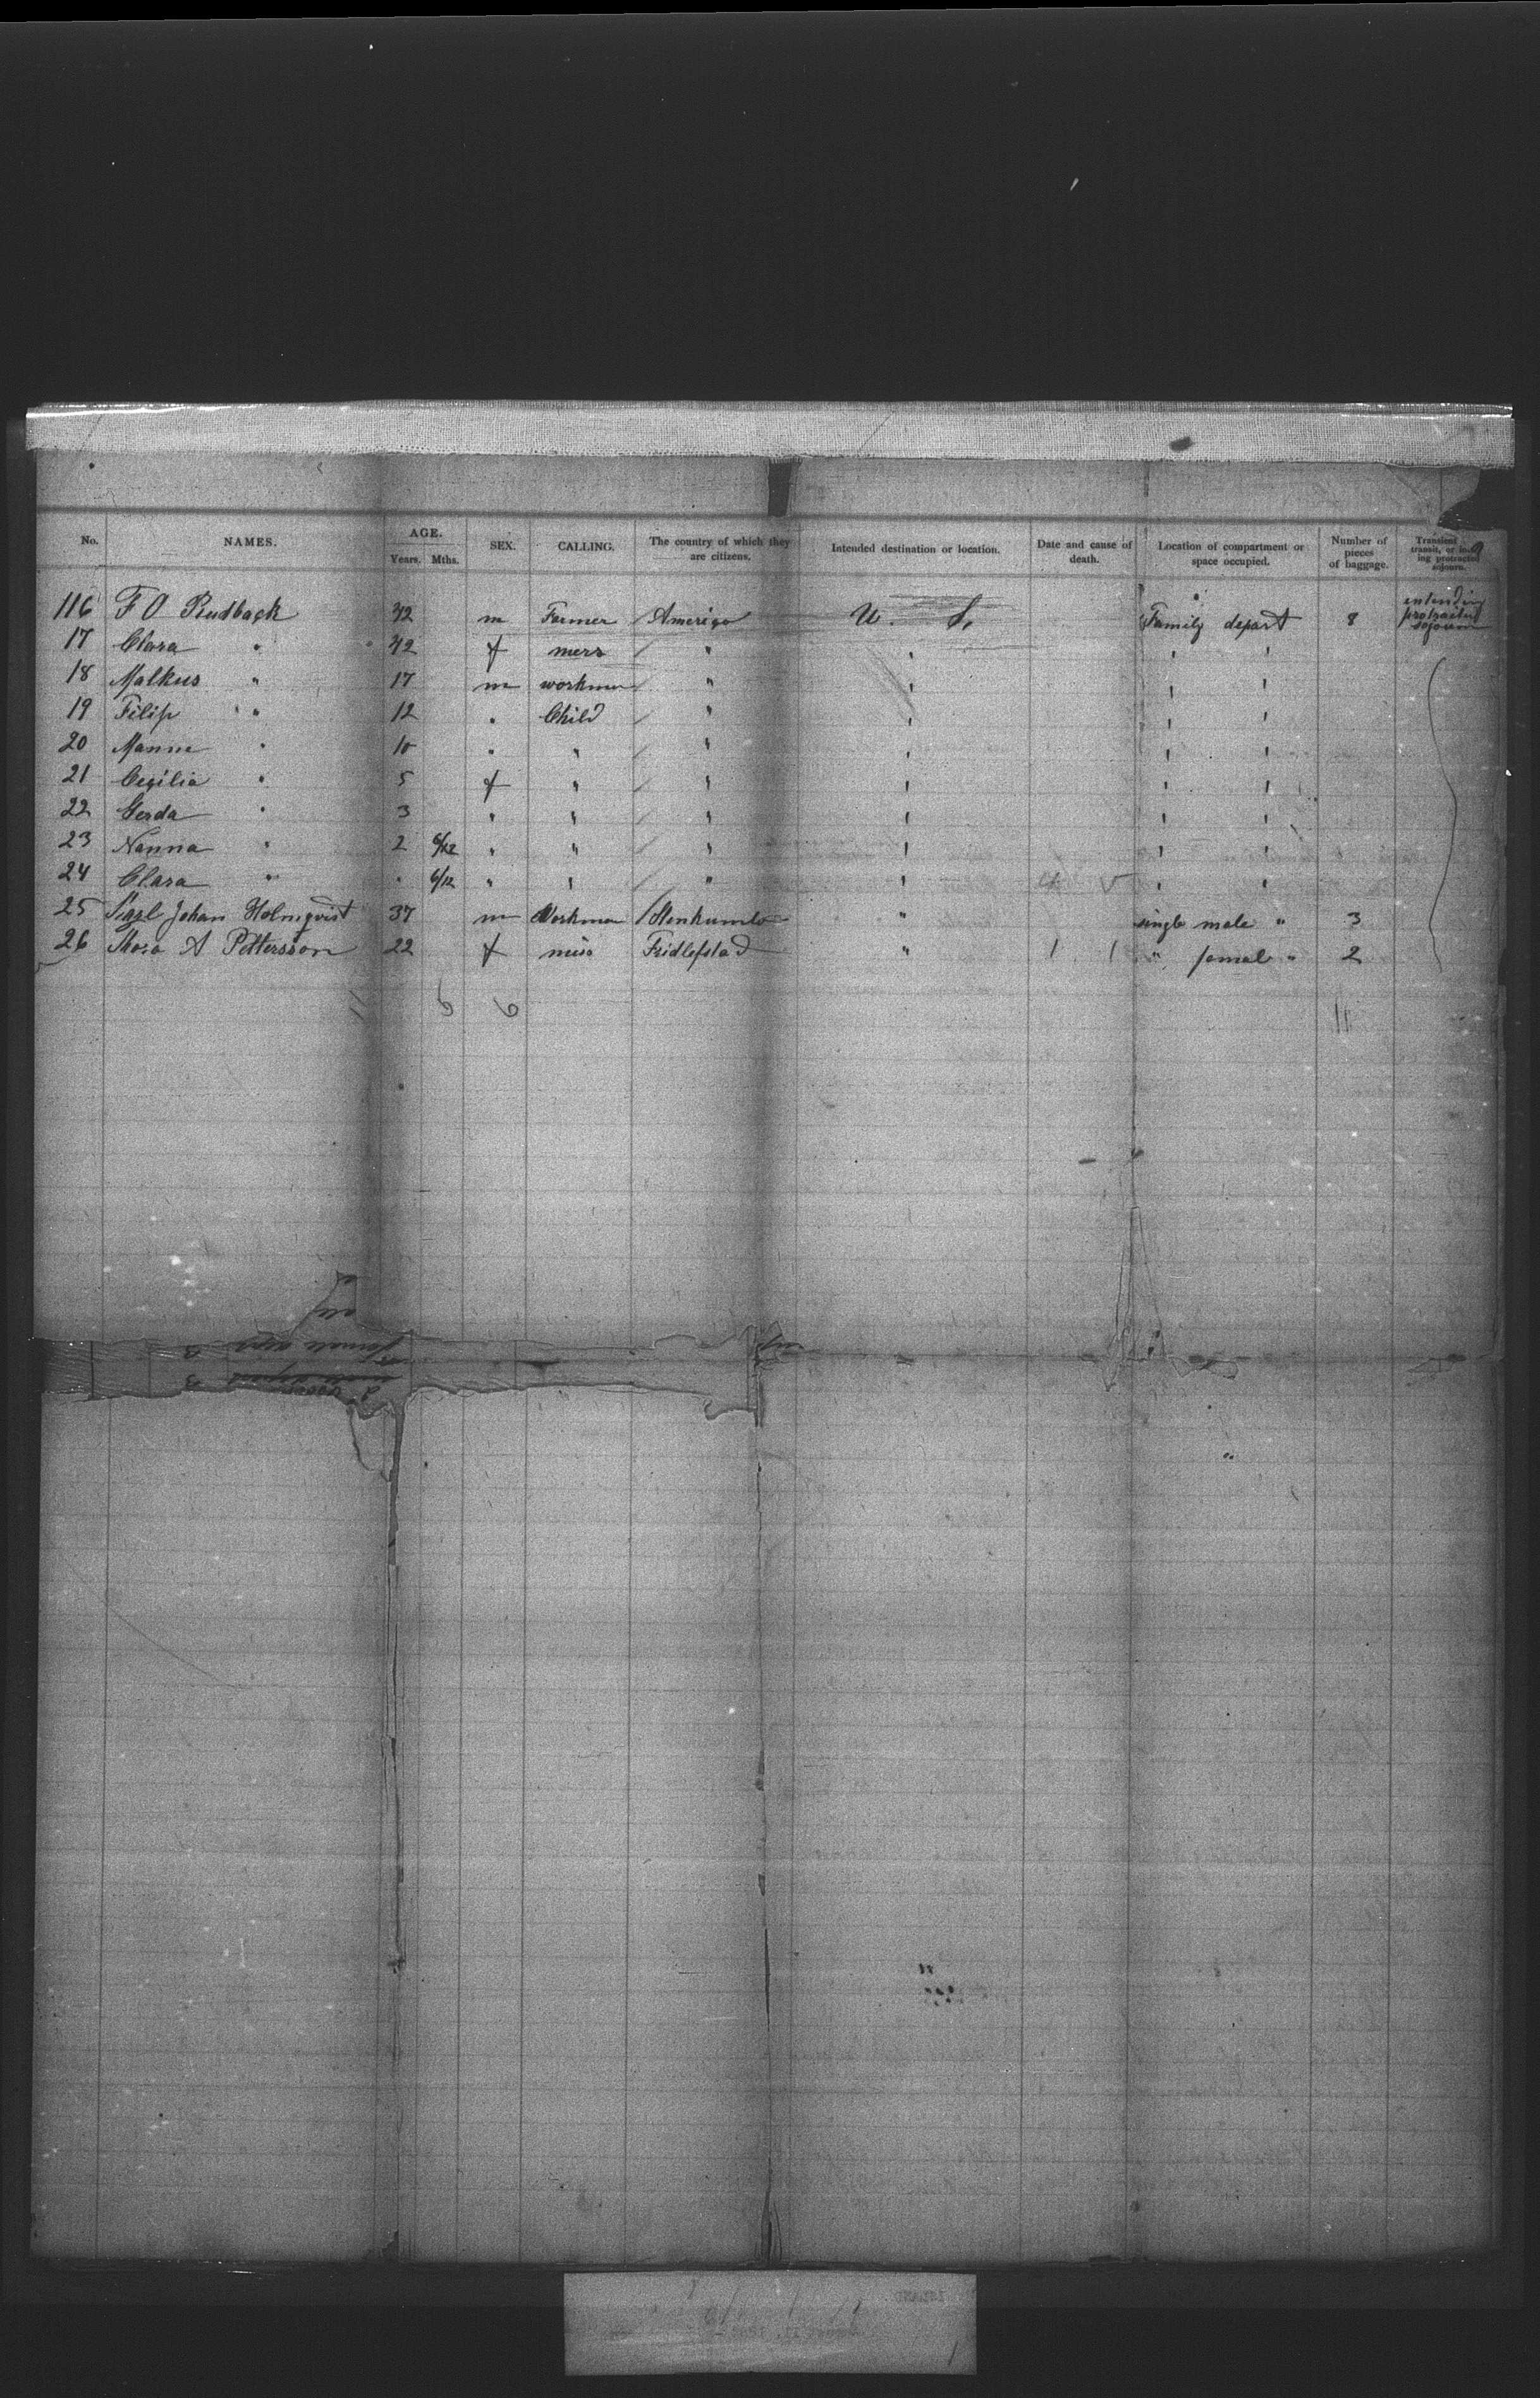 No. NAMES. AGE. Years. Mths. SEX. CALLING. The country of which they are citizens. Intended destination or location. Date and cause of death. Location of compartment or space occupied. Number of pieces of baggage. Transient transit, or ing protracted sojourn.
116 F O Rudback 42 m Farmer America U. S. Family depart 8 intending protracted sojourn
17 Clara " 42 f mers " " " "
18 Malkus " 17 m workman " " " "
19 Filip " 12 " Child " " " "
20 Mannie " 10 " " " " " "
21 Cecilia " 5 f " " " " "
22 Gerda " 3 " " " " " "
23 Nanna " 2 6/12 " " " " " "
24 Clara " " 6/12 " " " " " "
25 Johan Holmqvist 37 m Workman Stenkumla " single male " 3
26 A Pettersson 22 f miss Fridlefstad " 1 1 " femal " 2
11 6 6 11